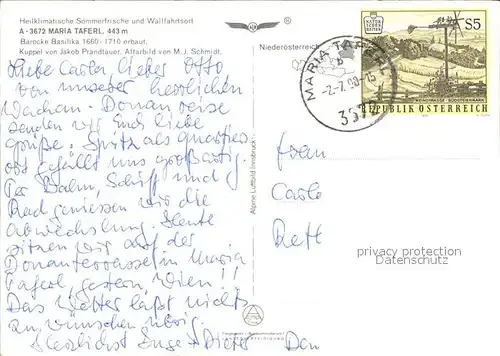 Heilklimatische Sommerfrische und Wallfahrtsort
A - 3672 MARIA TAFERL, 443 m
Barocke Basilika 1660-1710 erbaut.
Kuppel von Jakob Prandtauer. Altarbild von M. J. Schmidt.
Niederösterreich
Liebe Carla, lieber Otto
von unserer herrlichen
Wachau-Donaureise
senden wir Euch liebe
Grüße. Spitz als Quartier-
ort gefällt uns großartig.
Per Bahn, Schiff und
Rad geniessen wir die
Abwechslung. Heute
sitzen wir auf der
Donauterrasse in Maria
Taferl, gestern, Wien!!
Das Wetter läßt nichts
zu wünschen übrig.
Herzlichst Inge + Dieter
Alpine Luftbild Innsbruck
MARIA TAFERL
b
-2.-7.90-15
3672
NATUR
SCHÖNHEITEN
S5
REPUBLIK ÖSTERREICH
Frau
Carla
Rett
privacy protection
Datenschutz